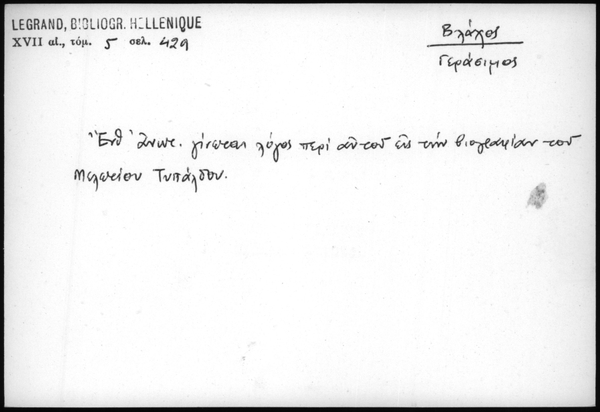 LEGRAND, BIBLIOGR. HELLENIQUE
XVII αἰ., τόμ. 5 σελ. 429
Βλάχος
Γεράσιμος
Ἔνθ' ἄνωτ. γίνεται λόγος περί αὐτοῦ εἰς τήν βιογραφίαν τοῦ
Μελετίου Τυπάλδου.